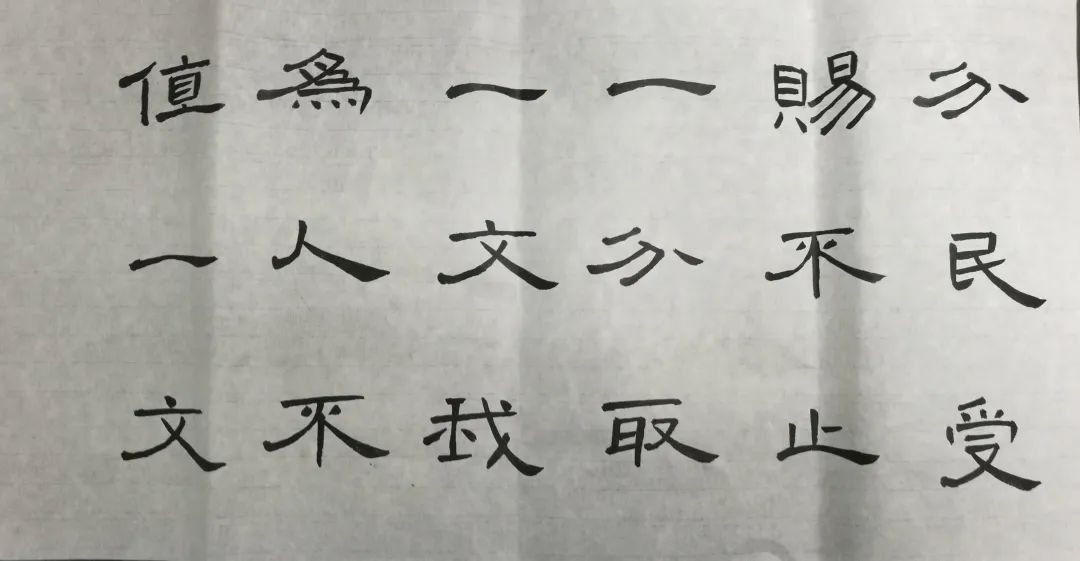 分民受
賜不止
一分取
一文我
爲人不
值一文